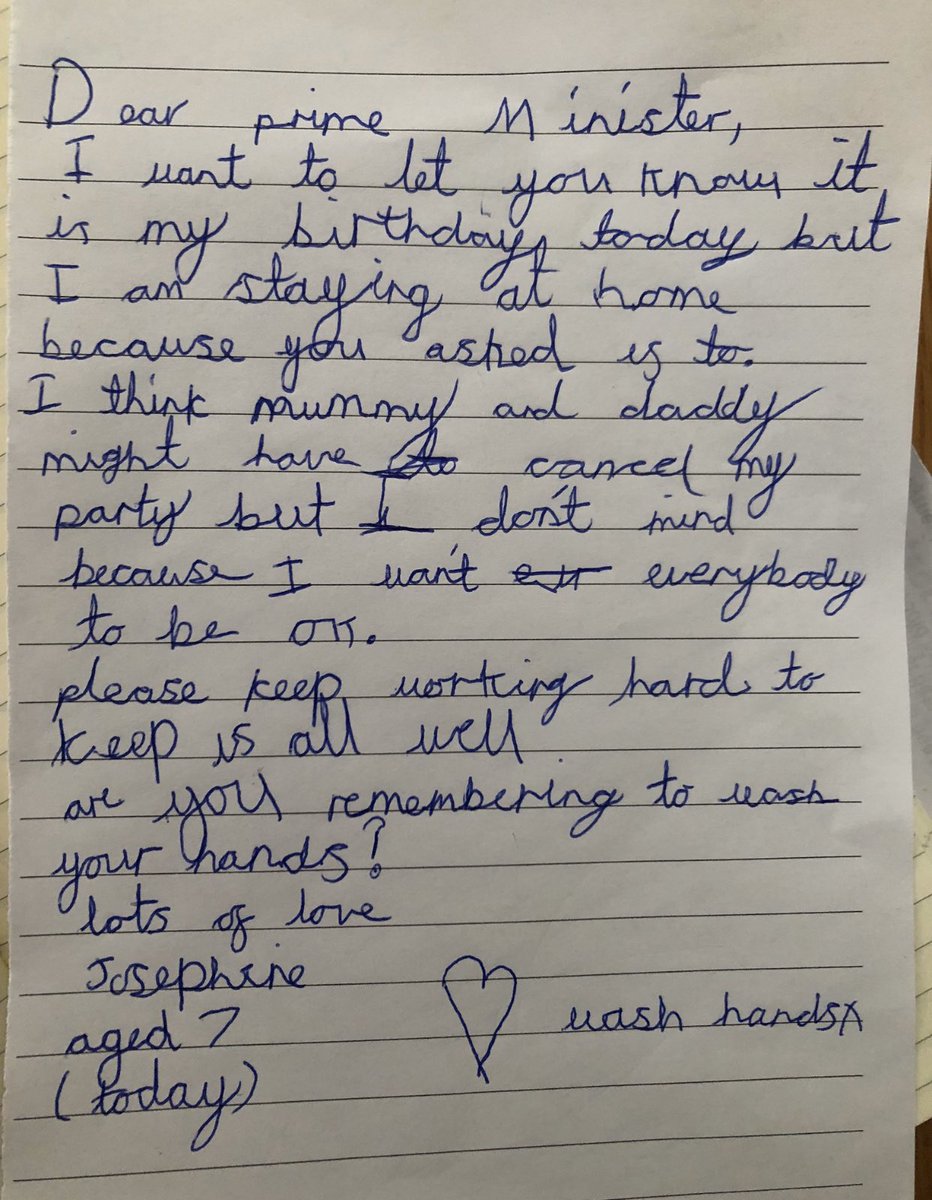 Dear prime Minister,
I want to let you know it
is my birthday today but
I am staying at home
because you asked us to.
I think mummy and daddy
might have to cancel my
party but I don't mind
because I want everybody
to be OK.
please keep working hard to
keep us all well
are you remembering to wash
your hands?
lots of love
Josephine
aged 7
wash hands x
(today)